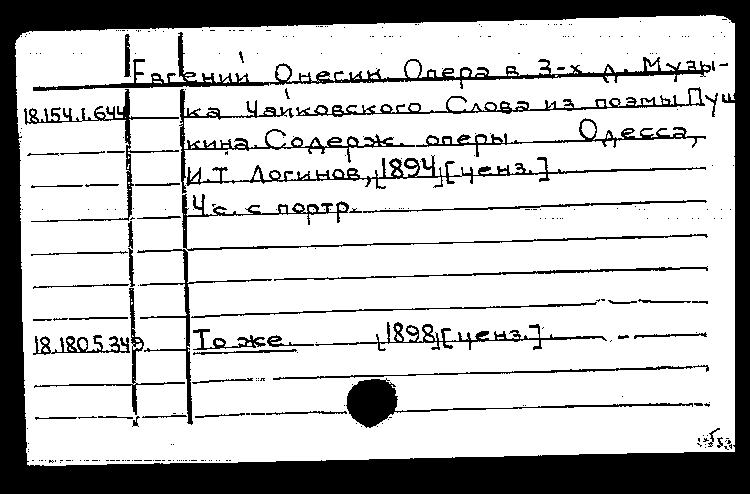 Евгений Онегин. Опера в 3-х д. Музы-
18.154.1.644 ка Чайковского. Слова из поэмы Пуш
кина. Содерж. оперы. Одесса,
И.Т. Логинов, 1894 [ценз.].
4 с. с портр.
18.180.5.349. То же. 1898 [ценз.].